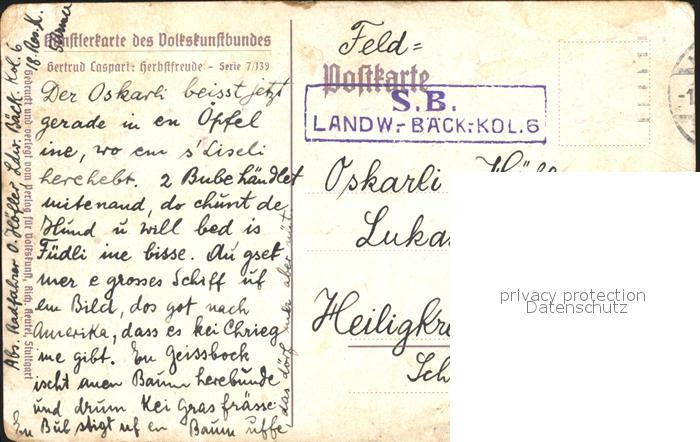 Künstlerkarte des Volkskunstbundes
Gertrud Caspari: Herbstfreude - Serie 7/139
Der Oskarli beisst jetzt
gerade in en Öpfel
ine, wo em s'Liseli
herehebt. 2 Bube händlet
mitenand, do chunt de
Hund u will bed is
Füdli ine bisse. Au gset
mer e grosses Schiff uf
em Bild, dos got nach
Amerika, dass es kei Chrieg
me gibt. En Geissbock
ischt anen Baum herebunde
und drum kei Gras frässe.
En Büb stigt uf en Baum uffe,
das dörf mer aber nüt
Abs. Radfahrer O. Höfler Ldw. Bäck. Kol. 6
18. Res. K.
Gedruckt und verlegt vom Verlag für Volkskunst, Rich. Keutel, Stuttgart
Feld=
Postkarte
S.B.
LANDW.-BÄCK.-KOL.6
Oskarli
Lukas
Heiligkre
Sch
privacy protection
Datenschutz